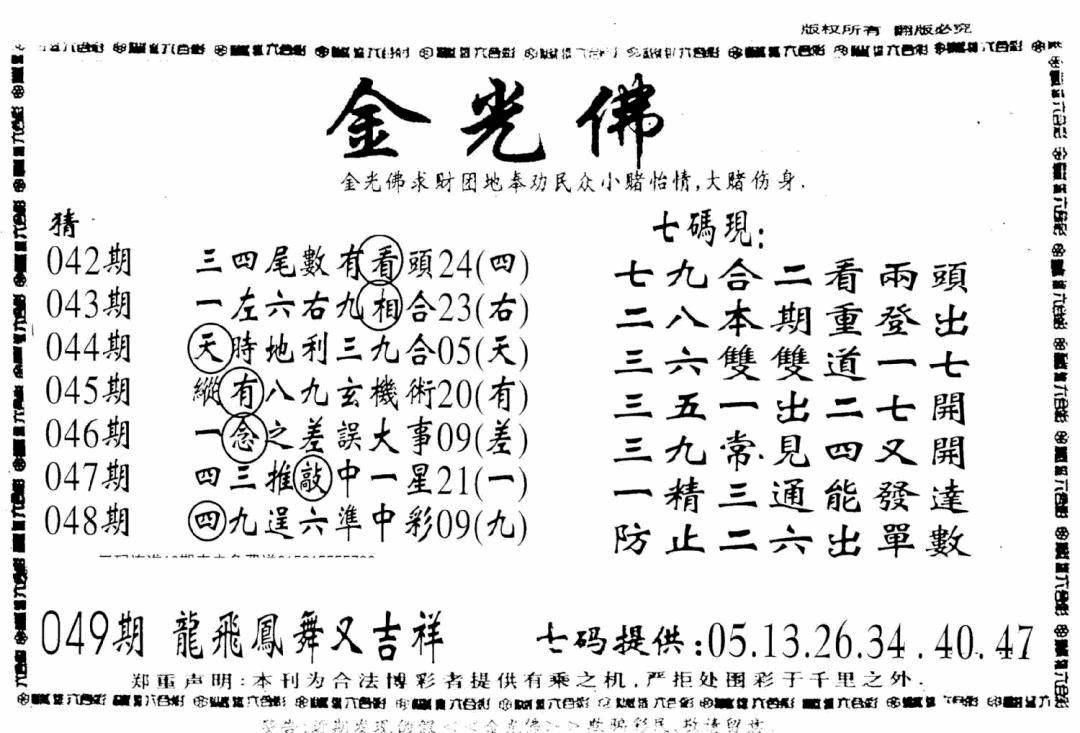 版权所有 翻版必究
金光佛
金光佛求财团地奉劝民众小赌怡情,大赌伤身.
猜
042期 三四尾數有看頭24(四)
043期 一左六右九相合23(右)
044期 天時地利三九合05(天)
045期 縱有八九玄機術20(有)
046期 一念之差誤大事09(差)
047期 四三推敲中一星21(一)
048期 四九逞六準中彩09(九)
七碼現:
七九合二看兩頭
二八本期重登出
三六雙雙道一七
三五一出二七開
三九常見四又開
一精三通能發達
防止二六出單數
049期 龍飛鳳舞又吉祥
七码提供:05.13.26.34.40.47
郑重声明:本刊为合法博彩者提供有乘之机,严拒处围彩于千里之外.